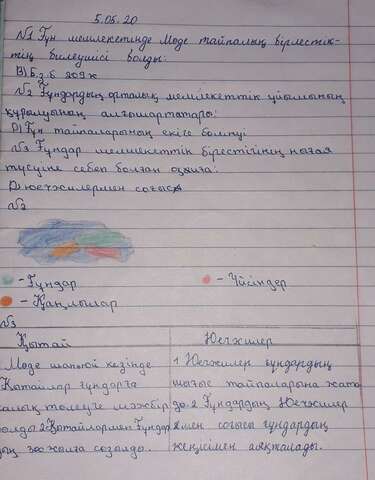 5.05.20
№1 Ғұн мемлекетінде Мөде тайпалық бірлестік-
тің билеушісі болды:
В) Б.з.б 209 ж
№2 Ғұндардың орталық мемлекеттік ұйымының
құрылуының алғышарттары:
D) Ғұн тайпаларының екіге бөлінуі
№3 Ғұндар мемлекеттік бірлестігінің нығая
түсуіне себеп болған оқиға:
D) юечжилермен соғыс
№2
- Ғұндар
- Үйсіндер
- Қаңлылар
№3
Қытай
Юечжилер
Мөде шаньюй кезінде
Қытайлар ғұндарға
салық төлеуге мәжбүр
болды 2. Қытайлармен Ғұндар
дың жолға созылды.
1 Юечжилер ғұндардың
шығыс тайпаларына жата
ды. 2 Ғұндардың Юечжилер
мен соғысы ғұндардың
жеңісімен аяқталады.